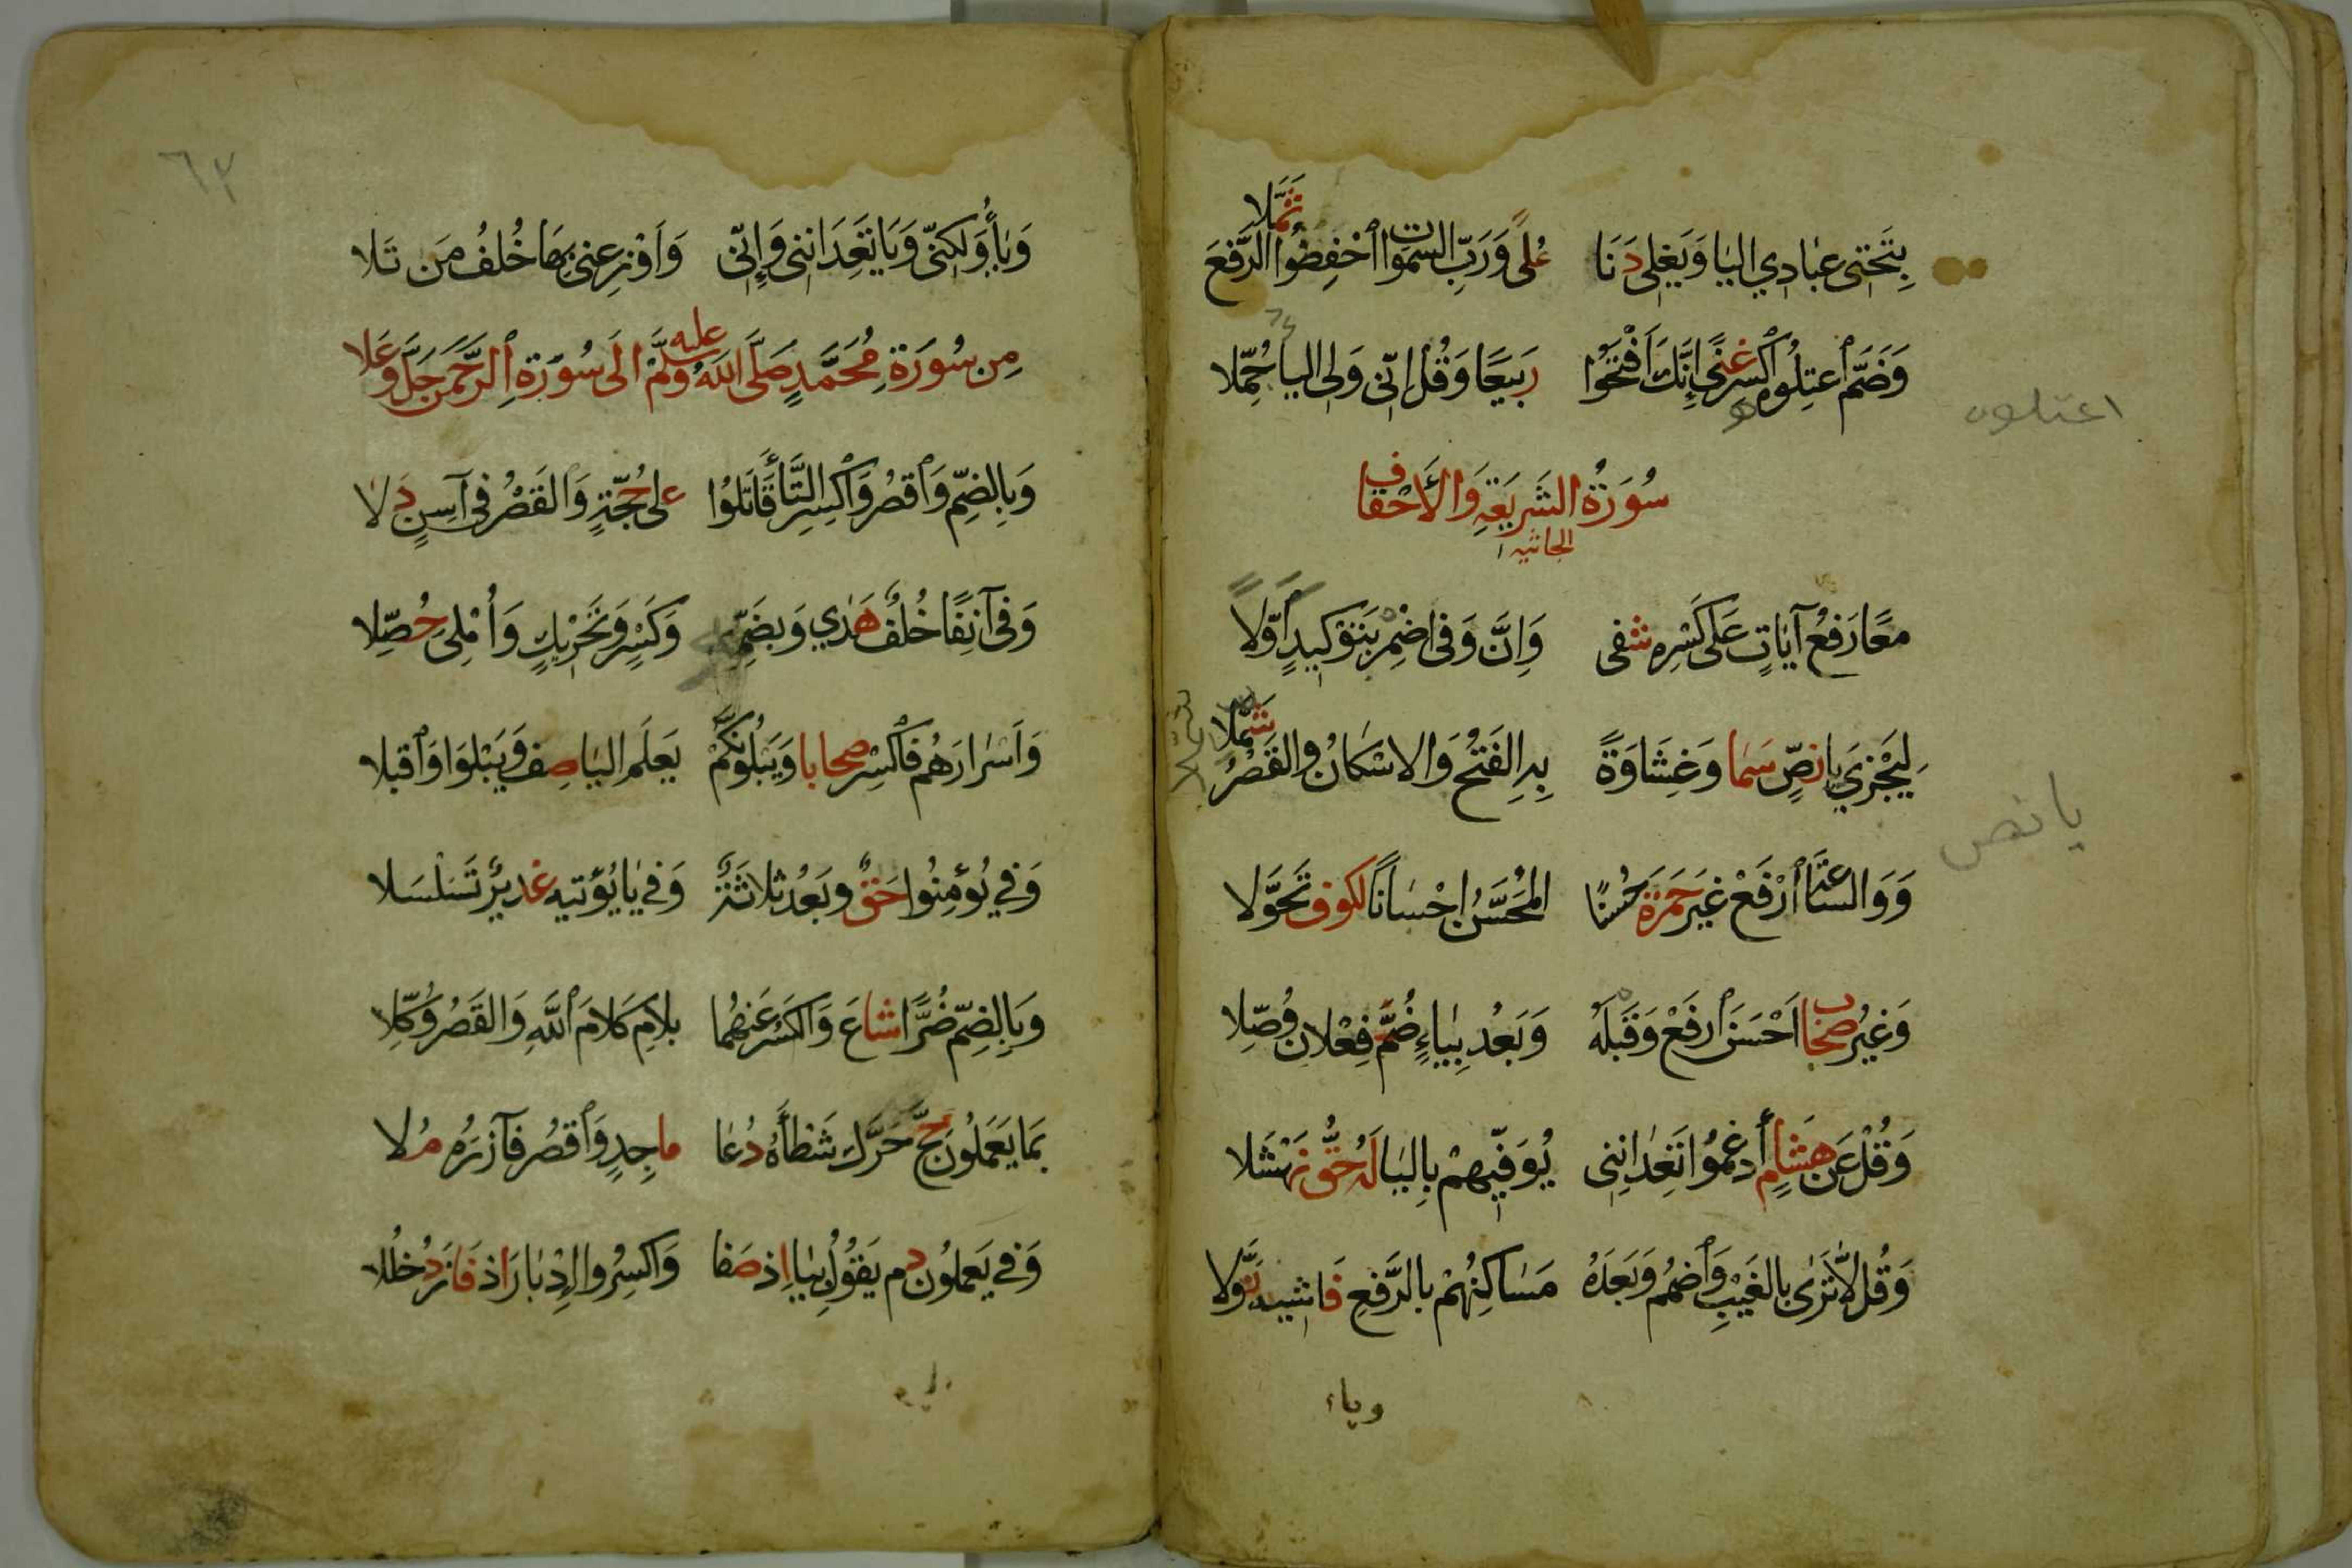 بِتَحْتِى عِبَادِي اليَا وَيَغْلِى دَنَا عُلًى وَرَبِّ السَّمٰوات ٱخْفِضُوا الرَّفْعَ ثُمَّلَا
وَضَمَّ ٱعْتِلُوهُ ٱكْسِرْ غِنًى إِنَّكَ ٱفْتَحُوا رَبِيعًا وَقُلْ إِنِّى وَلِى اليا حُمِّلَا
اعتلوه
سُورَةُ الشَّرِيعَةِ وَالأَحْقَاف
الجاثيه
مَعًا رَفْعُ آيَاتٍ عَلَى كَسْرِهِ شَفى وَإِنَّ وَفِى اضْمِرْ بِتَوْكِيدٍ أَوَّلَا
لِيَجْزِيَ يا نَصٍّ سَمَا وَغِشَاوَةً بِهِ الفَتْحُ وَالاسْكَانُ وَالقَصْرُ شُمِّلَا
يا نص
وَوَالسَّاعَةَ ٱرْفَعْ غَيْرَ حَمْزَةَ حُسْنًا المُحَسَّنُ إِحْسَانًا لكوف تَحَوَّلَا
وَغَيْرُ صِحَاب اَحْسَنَ ٱرْفَعْ وَقَبْلَهُ وَبَعْدُ بِيَاءٍ ضُمَّ فِعْلَانِ وُصِّلَا
وَقُلْ عَنْ هِشَامٍ أَدْغِمُوا تَعِدَانِنِى يُوَفِّيَهُمْ بِاليَا لَهُ حَقُّ نَهْشَلَا
وَقُلْ لَا تَرٰى بِالغَيْبِ وَٱضْمُمْ وَبَعْدَهُ مَسَاكِنُهُمْ بِالرَّفْعِ فَاشِيهِ نَوَّلَا
وياء
٦٣
وَيَاءُ وَلٰكِنِّى وَيَا تَعِدَانِنِى وَإِنِّى وَأَوْزِعْنِى بِهَا خُلْفُ مَنْ تَلَا
مِنْ سُورَةِ مُحَمَّدٍ صَلَّى اللهُ عليه وسَلَّمْ الَى سُورَةِ ٱلرَّحْمٰنِ جَلَّ وَعَلَا
وَبِالضَّمِّ وَٱقْصُرْ وَٱكْسِرِ التَّاءَ قَاتَلُوا عَلى حُجَّةٍ وَالقَصْرُ فِى آسِنٍ دَلَا
وَفِى آنِفًا خُلْفٌ هَدَي وَبِضَمِّهِمْ وَكَسْرٍ وَتَحْرِيكٍ وَأُمْلِى حُصِّلَا
وَأَسْرَارَهُمْ فَٱكْسِرْ صِحَابا وَيَبْلُوَنَّكُمْ يَعْلَمَ اليَا صِف وَيَبْلُوَا وَٱقْبَلَا
وَفِي يُؤْمِنُوا حَقٌّ وَبَعْدُ ثَلاثَةٌ وَفِي يَا يُؤْتِيهِ غَدِيرٌ تَسَلْسَلَا
وَبِالضَّمِّ ضُرًّا شَاعَ وَالكَسْرُ عَنْهُمَا بِلَامِ كَلَامَ ٱللهِ وَالقَصْرُ وُكِّلَا
بِمَا يَعْمَلُونَ حَجَّ حَرَّكَ شَطْأَهُ دُعَا مَاجِدٍ وَٱقْصُرْ فَآزَرَهُ مُلَا
وَفِي يَعْمَلُونَ دُم يَقُولُ بِيَا اِذ صَفا وَاكْسِرُوا اِدْبَارَ اِذ فَازَ دُخْلُلَا